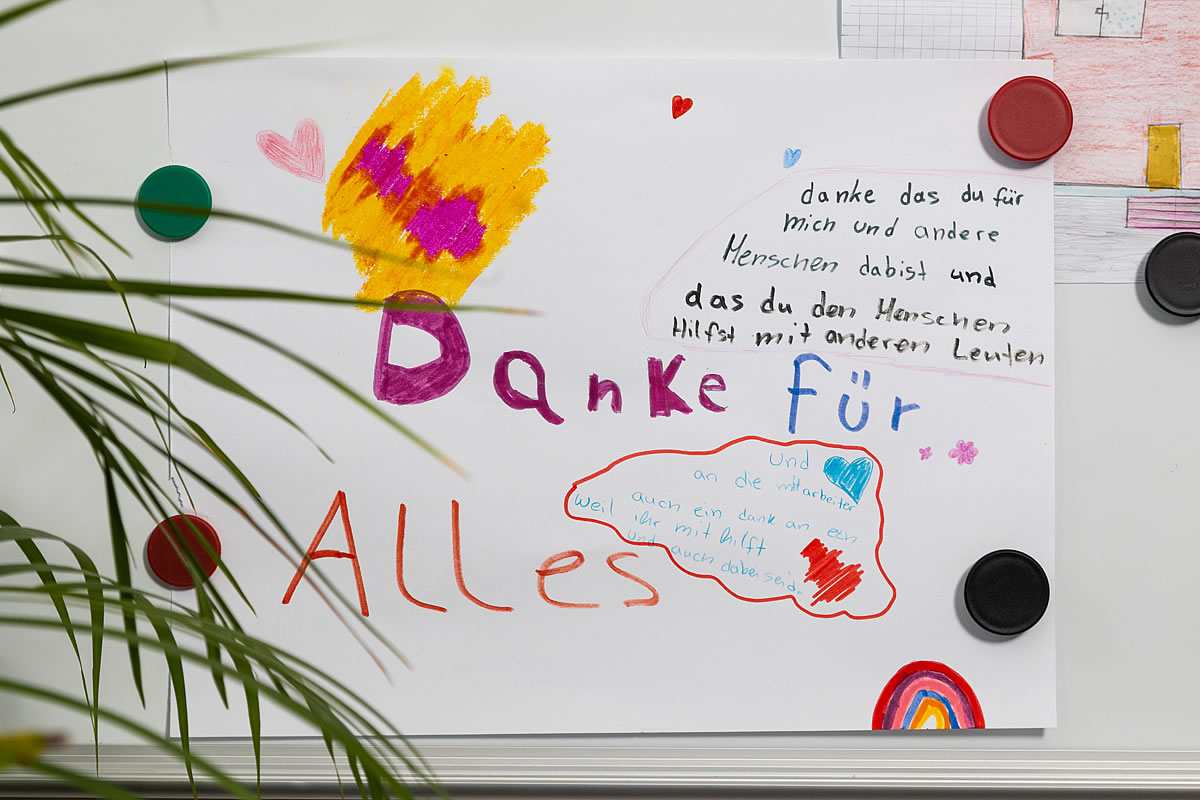 danke das du für
mich und andere
Menschen dabist und
das du den Menschen
Hilfst mit anderen Leuten
Danke für
Alles
und
an die mitarbeiter
auch ein dank an
weil ihr mit hilft
und auch dabei seid.